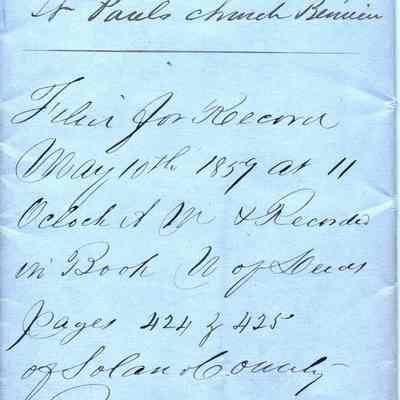 St Pauls church Benicia
Filed for Record
May 10th 1859 at 11
Oclock A M & Recorded
in Book N of Deeds
pages 424 & 425
of Solano County